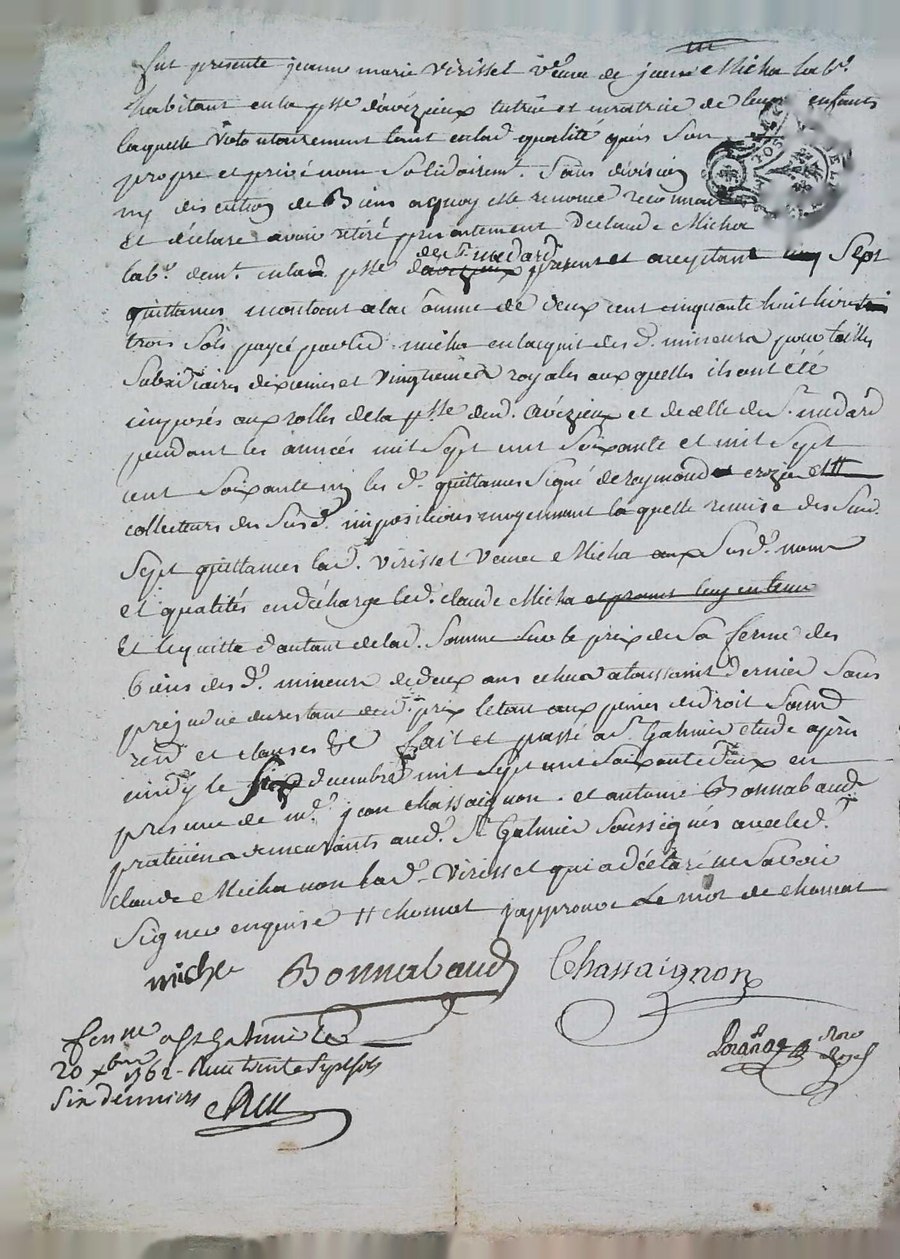 fut presente jeanne marie Virisset veuve de jean Micha lab.r
habitant en la psse d'avézieux tutrice et curatrice de leurs enfants
laquelle volontairement tant en lad. qualité qu'en son
propre et privé nom solidairem.t sans division
ny discution de Biens a quoy elle renonce reconnait
Et déclare avoir rétiré présentement De claude Micha
lab.r dem.t en lad. psse de St medard présent et acceptant Sept
quittances montant a la somme de deux cent cinquante huit livres
trois sols payée par led. micha en lacquit des d. mineurs pour tailles
subsidiaires dixiemes et vingtiemes royales auxquelles ils ont été
imposés aux rolles de la psse dud. avézieux et de celle de St medard
pendant les années mil sept cent soixante et mil sept
cent soixante un les d. quittances signé de raymond crozier #
collecteurs des susd. impositions moyennant laquelle remise des susd.
sept quittances lad. Virisset Veuve Micha aux susd. noms
et qualités en décharge led. claude Micha et promet luy en tenir
Et le quitte d'autant de lad. somme sur le prix de sa ferme des
biens des d. mineurs de deux ans echus a toussaint dernier sans
préjudice du restant dud. prix le tout aux peines de droit soumd
rend et clauses &c fait et passé a St Galmier etude après
midy le six decembre mil sept cent soixante deux en
présence de m.e jean chassaignon et antoine Bonnabaud
praticiens demeurants aud. St Galmier soussignés avec led.
claude Micha non lad. Virisset qui a déclaré ne savoir
signer enquise # chomat j'approuve le mot de chomat
miche Bonnabaud Chassaignon
20 xbre 1762 - Reçu trente sept sols
six deniers